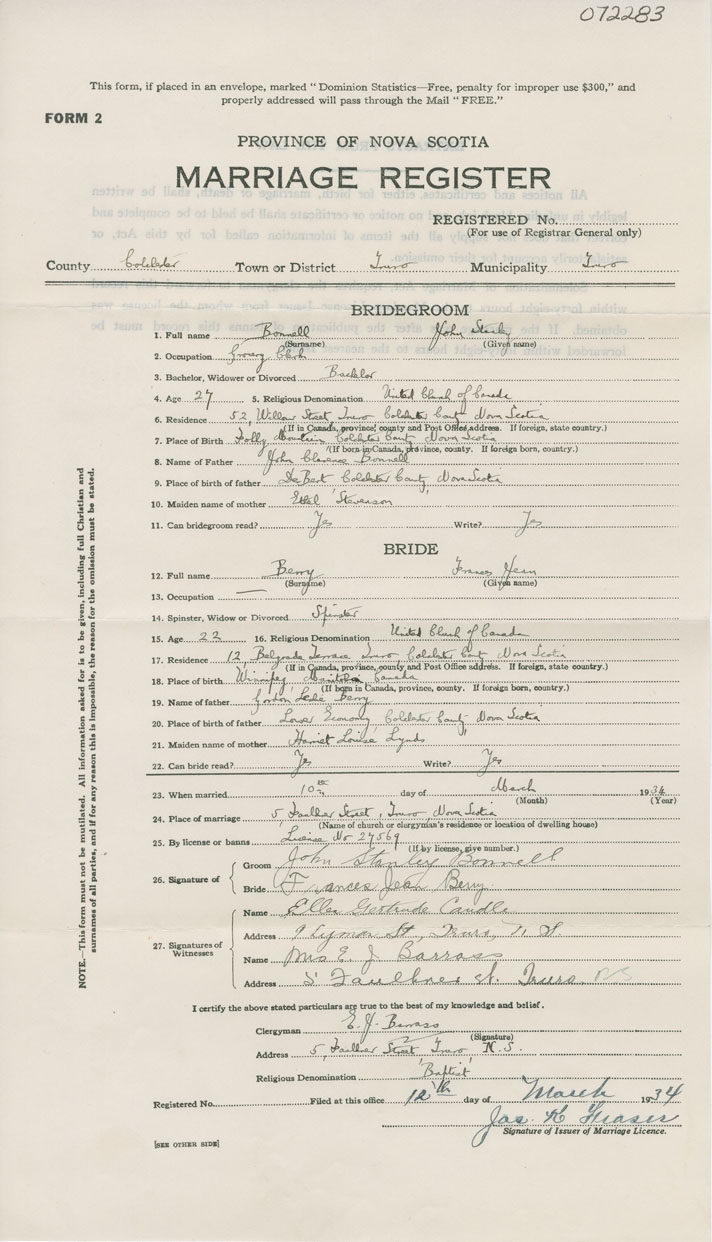 072283
This form, if placed in an envelope, marked "Dominion Statistics—Free, penalty for improper use $300," and
properly addressed will pass through the Mail "FREE."
FORM 2
PROVINCE OF NOVA SCOTIA
MARRIAGE REGISTER
REGISTERED No.
(For use of Registrar General only)
County Colchester Town or District Truro Municipality Truro
BRIDEGROOM
1. Full name Bonnell John Stanley
(Surname) (Given name)
2. Occupation Grocery Clerk
3. Bachelor, Widower or Divorced Bachelor
4. Age 27 5. Religious Denomination United Church of Canada
6. Residence 52 Willow Street Truro Colchester County Nova Scotia
(If in Canada, province, county and Post Office address. If foreign, state country.)
7. Place of Birth Folly Mountain Colchester County Nova Scotia
(If born in Canada, province, county. If foreign born, country.)
8. Name of Father John Clarence Bonnell
9. Place of birth of father DeBert Colchester County Nova Scotia
10. Maiden name of mother Ethel Stevenson
11. Can bridegroom read? Yes Write? Yes
BRIDE
12. Full name Berry Frances Jean
(Surname) (Given name)
13. Occupation —
14. Spinster, Widow or Divorced Spinster
15. Age 22 16. Religious Denomination United Church of Canada
17. Residence 12 Belgrade Terrace Truro Colchester County Nova Scotia
(If in Canada, province, county and Post Office address. If foreign, state country.)
18. Place of birth Winnipeg Manitoba Canada
(If born in Canada, province, county. If foreign born, country.)
19. Name of father Gordon Leslie Berry
20. Place of birth of father Lower Economy Colchester County Nova Scotia
21. Maiden name of mother Harriet Louise Lynds
22. Can bride read? Yes Write? Yes
23. When married 10 day of March 1934
(Month) (Year)
24. Place of marriage 5 Faulkner Street, Truro, Nova Scotia
(Name of church or clergyman's residence or location of dwelling house)
25. By license or banns License No 27569
(If by license, give number.)
26. Signature of Groom John Stanley Bonnell
Bride Frances Jean Berry
27. Signatures of Witnesses
Name Ellen Gertrude Caudle
Address 9 Lyman St., Truro, N.S.
Name Mrs E. J. Barrass
Address 5 Faulkner St. Truro, N.S.
I certify the above stated particulars are true to the best of my knowledge and belief.
Clergyman E. J. Barrass
(Signature)
Address 5, Faulkner Street Truro N.S.
Religious Denomination 'Baptist'
Registered No. Filed at this office 12th day of March 1934
Jas. K. Fraser
Signature of Issuer of Marriage Licence.
[SEE OTHER SIDE]
NOTE.—This form must not be mutilated. All information asked for is to be given, including full Christian and
surnames of all parties, and if for any reason this is impossible, the reason for the omission must be stated.